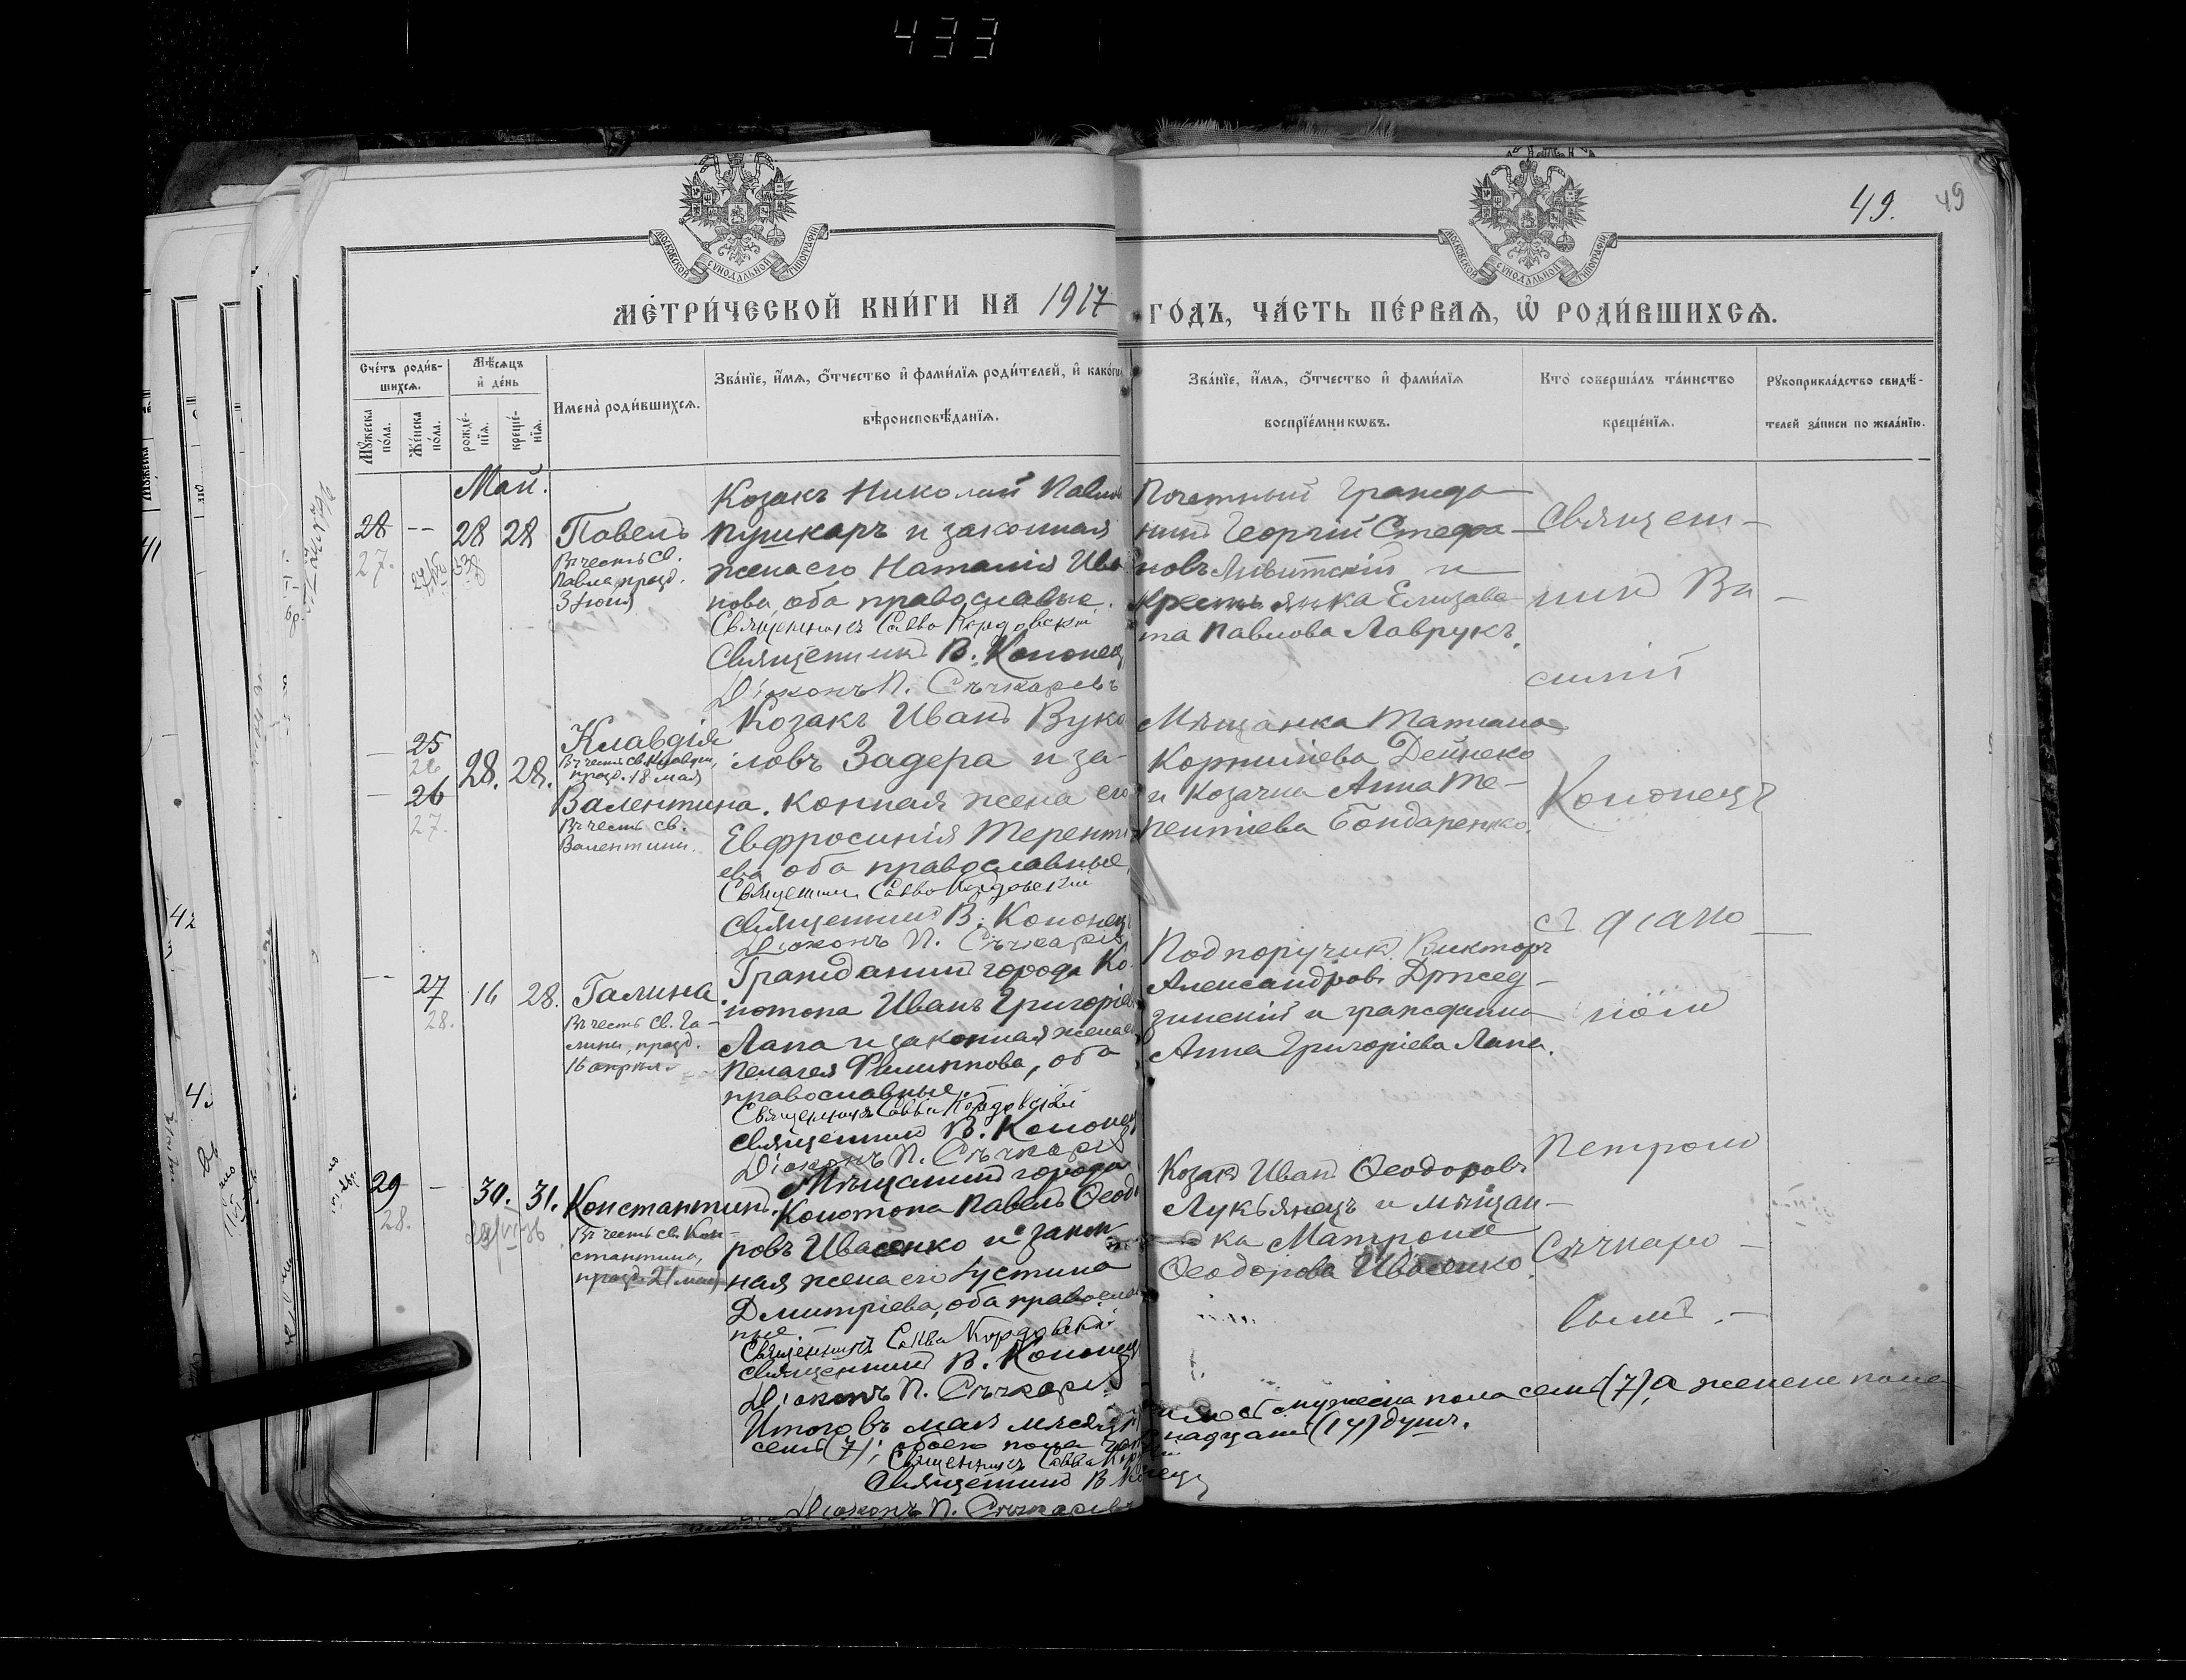 433
49.
49
МОСКОВСКОЙ СѴНОДАЛЬНОЙ ТИПОГРАФІИ
МОСКОВСКОЙ СѴНОДАЛЬНОЙ ТИПОГРАФІИ
МЕТРИ́ЧЕСКОЙ КНИ́ГИ НА 1917 ГО́ДЪ, ЧА́СТЬ ПЕ́РВАѦ, Ѡ҆ РОДИ́ВШИХСѦ.
Сче́тъ роди́в-
шихсѧ.
Мѣ́сѧцъ
и҆ де́нь
Мꙋ́жеска
по́ла.
Же́нска
по́ла.
рожде́-
нїѧ.
креще́-
нїѧ.
Имена̀ роди́вшихсѧ.
Зва́нїе, и҆́мѧ, ѻ҆́тчество и҆ фами́лїѧ роди́телей, и҆ како́гѡ
вѣроисповѣ́данїѧ.
Зва́нїе, и҆́мѧ, ѻ҆́тчество и҆ фами́лїѧ
воспрїе́мникѡвъ.
Кто̀ соверша́лъ та́инство
креще́нїѧ.
Рꙋкоприкла́дство свидѣ́-
телей за́писи по жела́нїю.
Май.
28 -- 28 28 Павелъ
27.
Въ честь св.
Павла, празд.
3 Іюня
Козакъ Николай Павлов
Пушкаръ и законная
жена его Наталія Ива
нова, оба православные.
Священникъ Савва Кордовскій
Священникъ В. Кононец
Діаконъ П. Сѣчкаревъ
Почетный гражда-
нинъ Георгій Стефа-
новъ Левитскій и
крестьянка Елизаве-
та Павлова Лаврукъ.
Священ-
никъ Ва-
силій
Кононецъ
съ діако-
номъ
Петромъ
Сѣчкаре-
вымъ.
— 25 28. 28. Клавдія
26
Въ честь св. Клавдіи,
празд. 18 мая
— 26 Валентина.
27.
Въ честь св.
Валентины.
Козакъ Иванъ Вуко
ловъ Задера и за-
конная жена его
Евфросинія Теренті
ева, оба православные.
Священникъ Савва Кордовскій
Священникъ В. Кононец
Діаконъ П. Сѣчкарев
Мѣщанка Татіана
Корниліева Дейнеко
и козачка Анна Те-
рентіева Бондаренко.
-- 27 16 28. Галина.
28.
Въ честь св. Га-
лины, празд.
16 апрѣля
Гражданинъ города Ко-
нотопа Иванъ Григоріев
Лапа и законная жена его
Пелагея Филиппова, оба
православные.
Священникъ Савва Кордовскій
Священникъ В. Кононец
Діаконъ П. Сѣчкарев
Подпоручикъ Викторъ
Александровъ Држед-
зинскій и гражданка
Анна Григоріева Лапа.
29 — 30. 31. Константинъ.
28.
Въ честь св. Кон-
стантина,
празд. 21 мая
Мѣщанинъ города
Конотопа Павелъ Ѳеодо
ровъ Ивасенко и закон
ная жена его Іустина
Дмитріева, оба православ
ные.
Священникъ Савва Кордовскій
Священникъ В. Кононец
Діаконъ П. Сѣчкарев
Козакъ Иванъ Ѳеодоровъ
Лукьянецъ и мѣщан-
ка Матрона
Ѳеодорова Ивасенко
Итого въ маѣ мѣсяцѣ мужеска пола семь (7), а женска пола
семь (7); обоего пола четырнадцать (14) душъ.
Священникъ Савва Кордовскій
Священникъ В. Кононецъ
Діаконъ П. Сѣчкаревъ